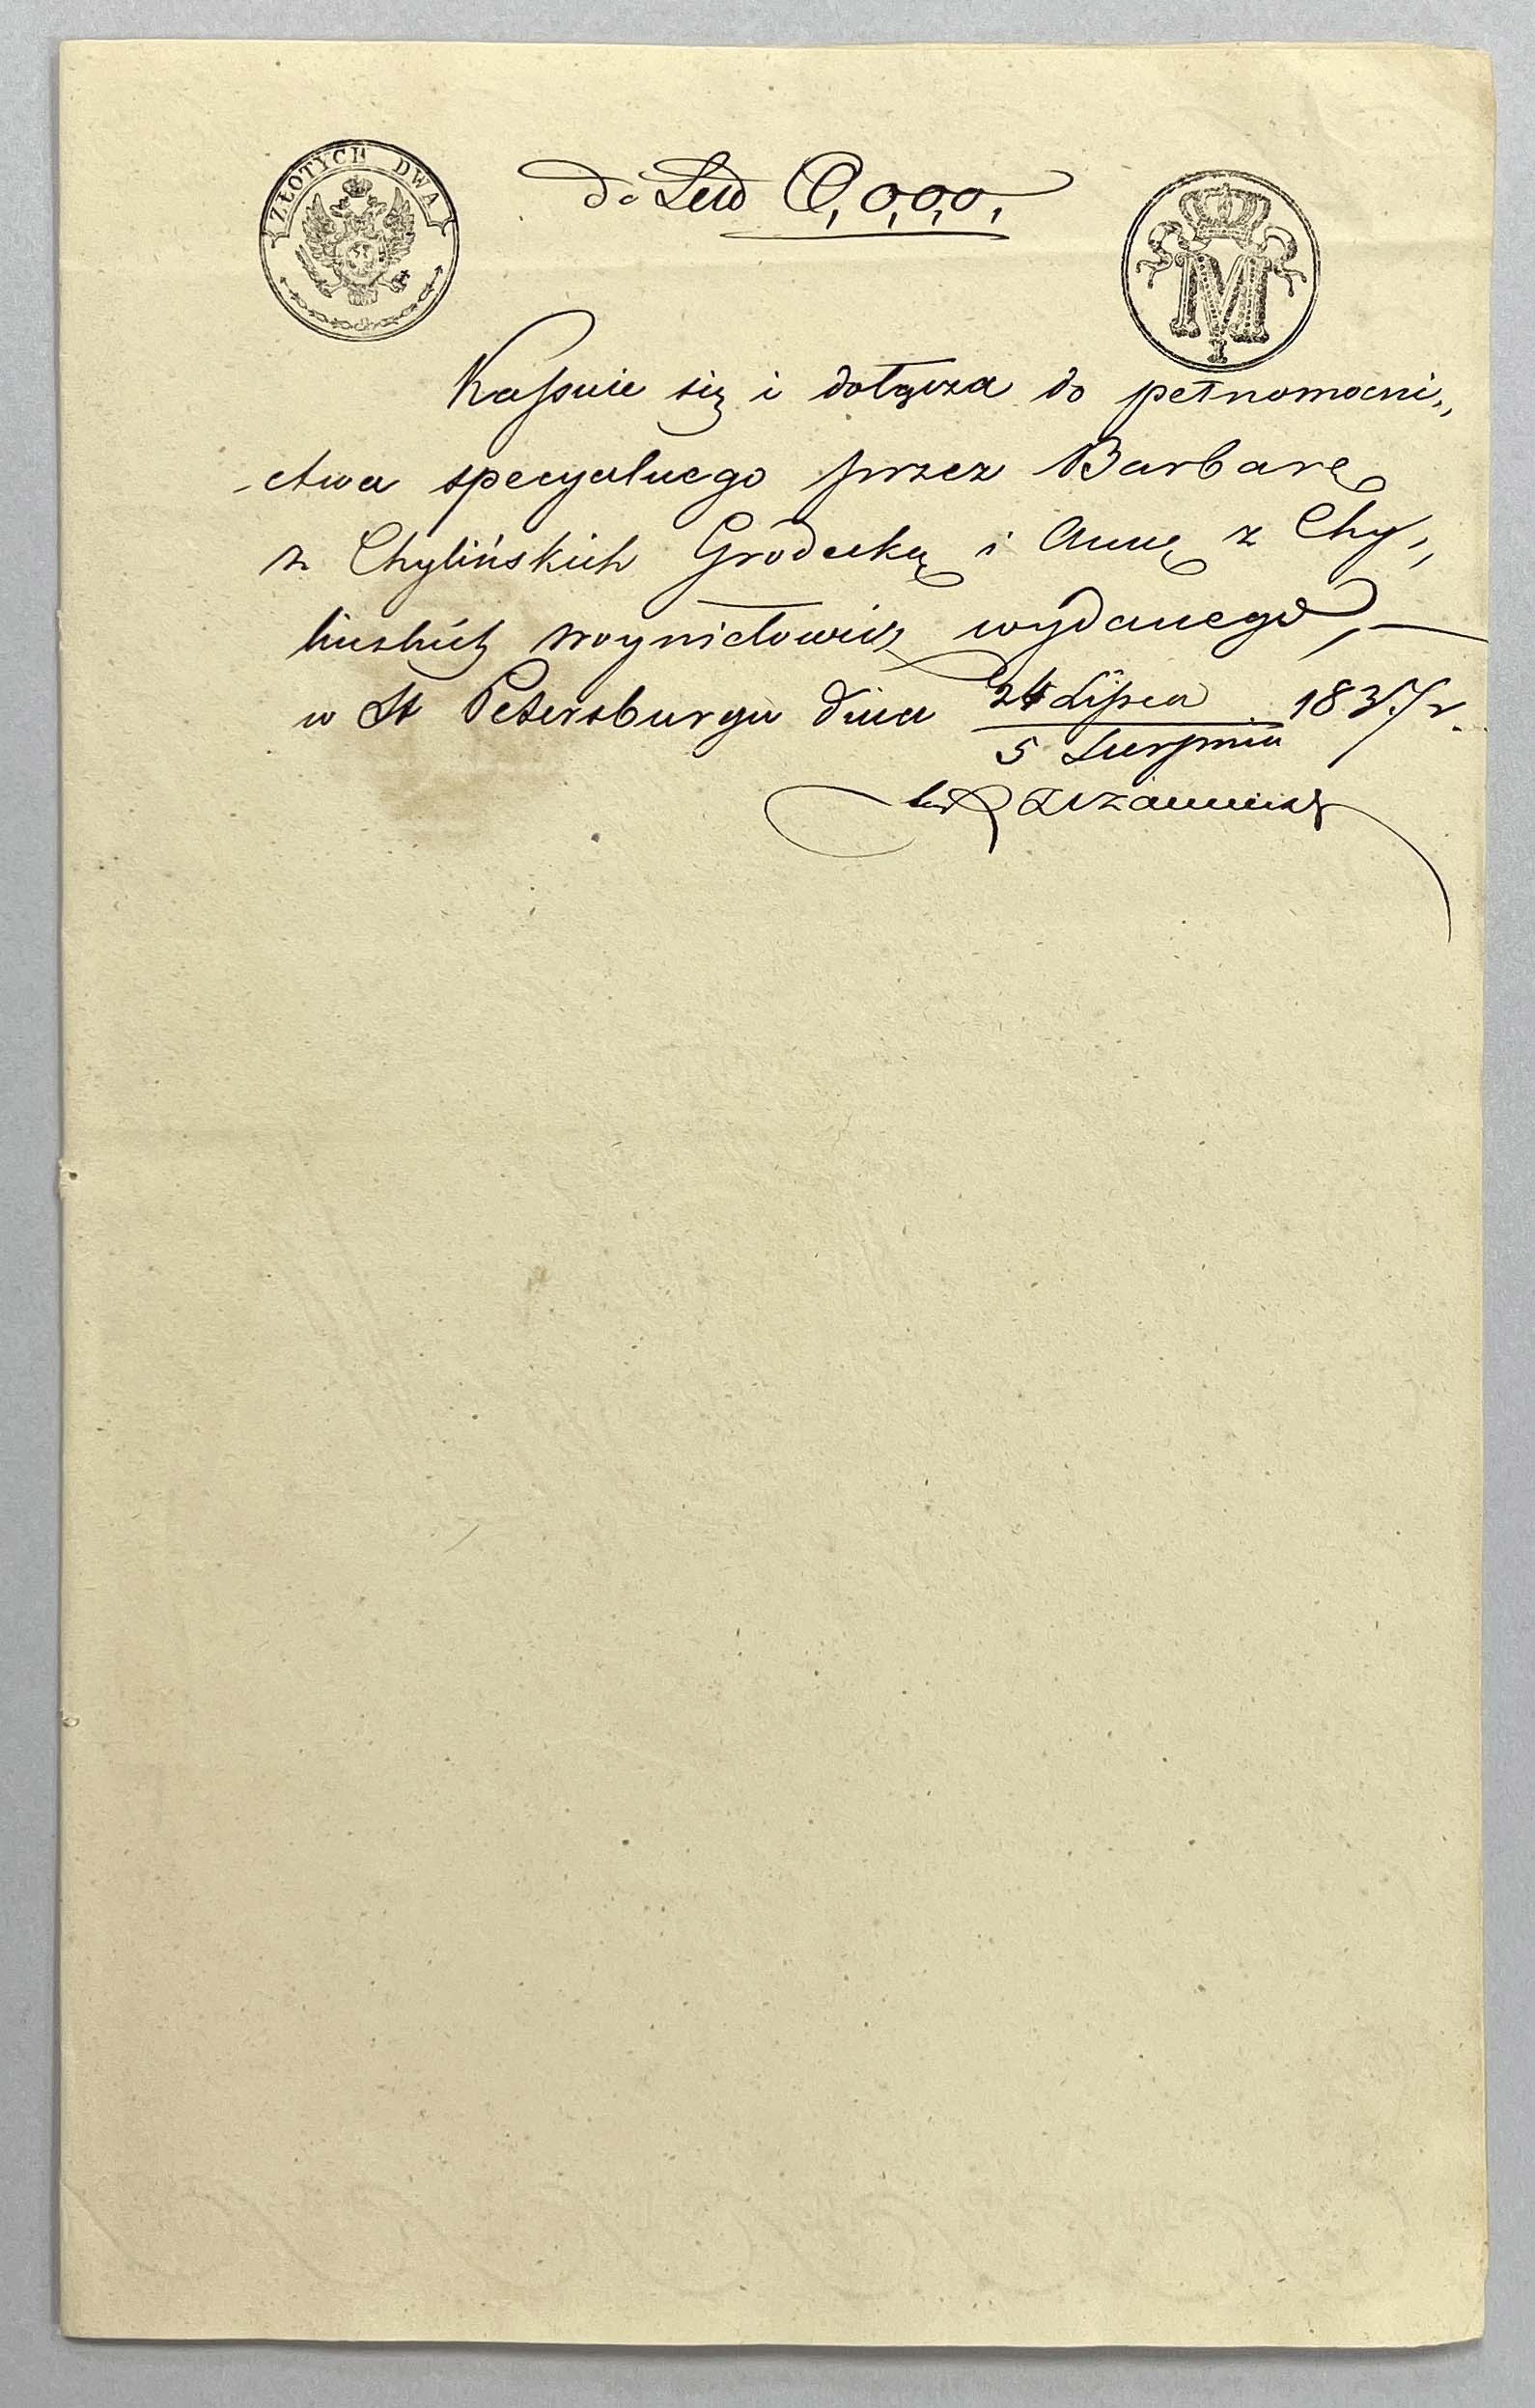 ZŁOTYCH DWA
do Lew
M
I
Kassuie się i dołącza do pełnomocni„
-ctwa specyalnego przez Barbarę
z Chylińskich Grodecką i Annę z Chy„
lińskich Woyniełowicz wydanego, —
w St Petersburgu dnia 24 Lipca 1837 r.
5 Sierpnia